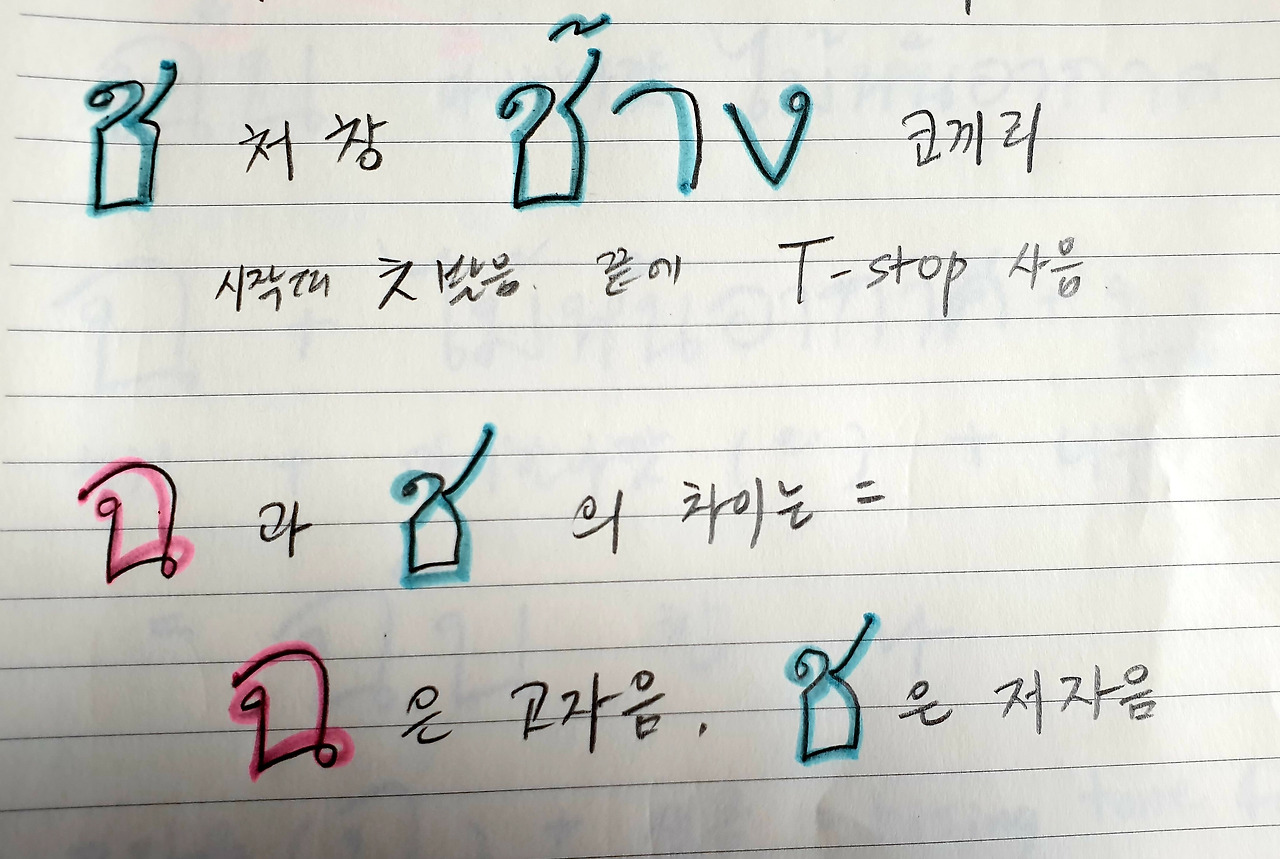 ช 처 창 ช๊าง 코끼리
시작때 ㅊ 발음. 끝에 T-stop 사음.
ฉ 과 ช 의 차이는 =
ฉ 은 고자음. ช 은 저자음